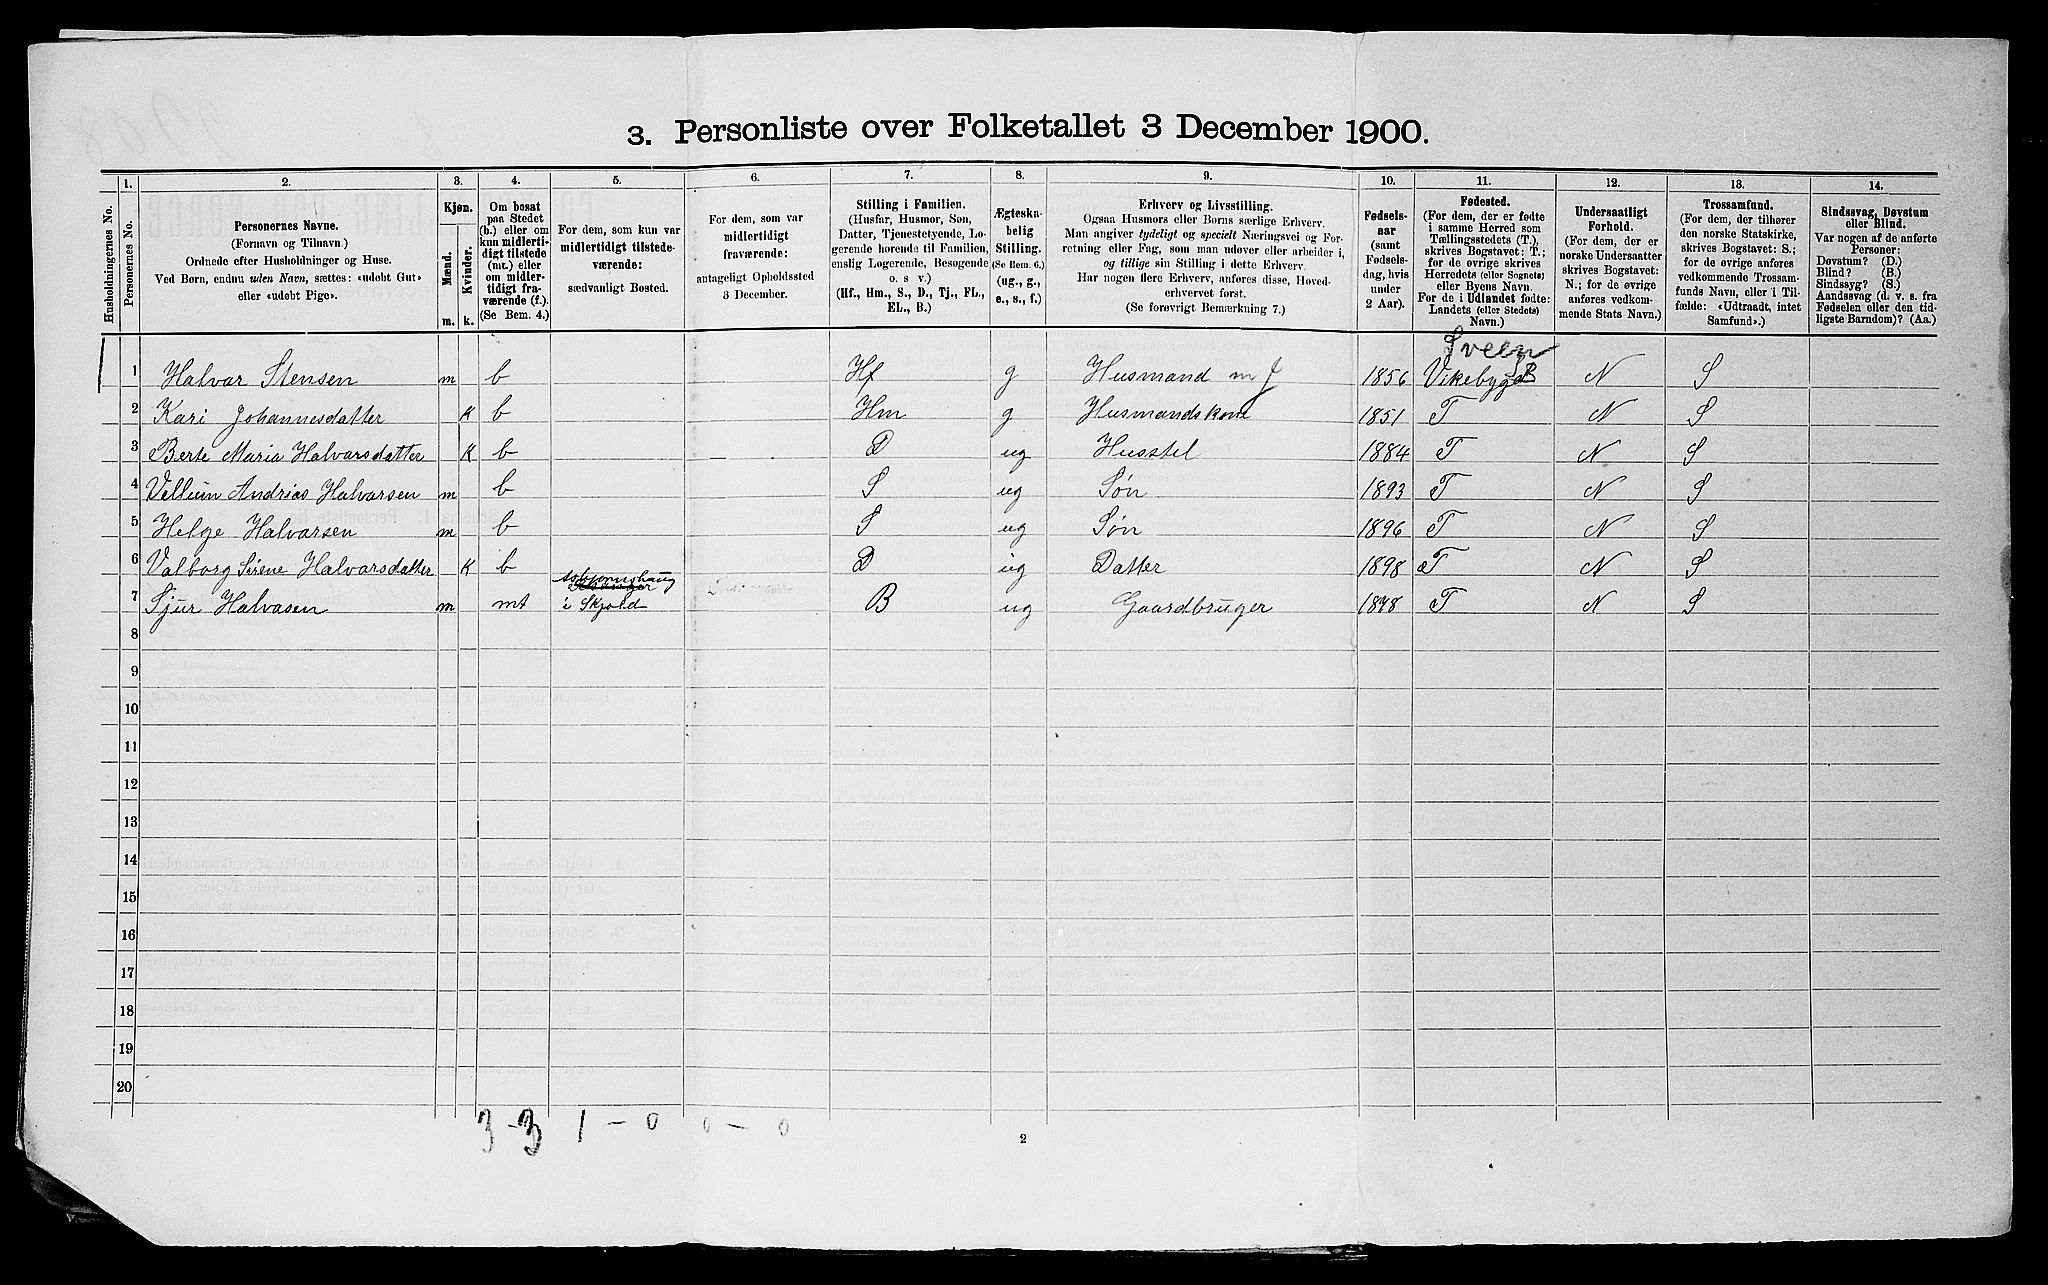 3. Personliste over Folketallet 3 December 1900.
1. 2. 3. 4. 5. 6. 7. 8. 9. 10. 11. 12. 13. 14.
Husholdningernes No.
Personernes No.
Personernes Navne.
(Fornavn og Tilnavn.)
Ordnede efter Husholdninger og Huse.
Ved Børn, endnu uden Navn, sættes: «udøbt Gut»
eller «udøbt Pige».
Kjøn.
Mænd.
Kvinder.
m. k.
Om bosat
paa Stedet
(b.) eller om
kun midlerti-
digt tilstede
(mt.) eller
om midler-
tidigt fra-
værende (f.).
(Se Bem. 4.)
For dem, som kun var
midlertidigt tilstede-
værende:
sædvanligt Bosted.
For dem, som var
midlertidigt
fraværende:
antageligt Opholdssted
3 December.
Stilling i Familien.
(Husfar, Husmor, Søn,
Datter, Tjenestetyende, Lo-
gerende hørende til Familien,
enslig Logerende, Besøgende
o. s v.)
(Hf., Hm., S., D., Tj., FL.,
EL., B.)
Ægteska-
belig
Stilling.
(Se Bem. 6.)
(ug., g.,
e., s., f.)
Erhverv og Livsstilling.
Ogsaa Husmors eller Børns særlige Erhverv.
Man angiver tydeligt og specielt Næringsvei og For-
retning eller Fag, som man udøver eller arbeider i,
og tillige sin Stilling i dette Erhverv.
Har nogen flere Erhverv, anføres disse, Hoved-
erhvervet først.
(Se forøvrigt Bemærkning 7.)
Fødsels-
aar
(samt
Fødsels-
dag, hvis
under
2 Aar).
Fødested.
(For dem, der er fødte
i samme Herred som
Tællingsstedets (T.),
skrives Bogstavet: T.;
for de øvrige skrives
Herredets (eller Sognets)
eller Byens Navn.
For de i Udlandet fødte:
Landets (eller Stedets)
Navn.)
Undersaatligt
Forhold.
(For dem, der er
norske Undersaatter
skrives Bogstavet:
N.; for de øvrige
anføres vedkom-
mende Stats Navn.)
Trossamfund.
(For dem, der tilhører
den norske Statskirke,
skrives Bogstavet: S.;
for de øvrige anføres
vedkommende Trossam-
funds Navn, eller i Til-
fælde: «Udtraadt, intet
Samfund».)
Sindssvag, Døvstum
eller Blind.
Var nogen af de anførte
Personer:
Døvstum? (D.)
Blind? (B.)
Sindssyg? (S.)
Aandssvag (d. v. s. fra
Fødselen eller den tid-
ligste Barndom)? (Aa.)
Sveen
1 Halvar Stensen m b Hf g Husmand m J 1856 Vikebygd N S
2 Kari Johannesdatter K b Hm g Husmandskone 1851 T N S
3 Berte Maria Halvarsdatter K b D ug Husstel 1884 T N S
4 Vellum Andrias Halvarsen m b S ug Søn 1893 T N S
5 Helge Halvarsen m b S ug Søn 1896 T N S
6 Valborg Sirene Halvarsdatter K b D ug Datter 1898 T N S
Asbjørnshaug
7 Sjur Halvasen m mt i Skjold B ug Gaardbruger 1878 T N S
8
9
10
11
12
13
14
15
16
17
18
19
20
3-3 1-0 0-0
2